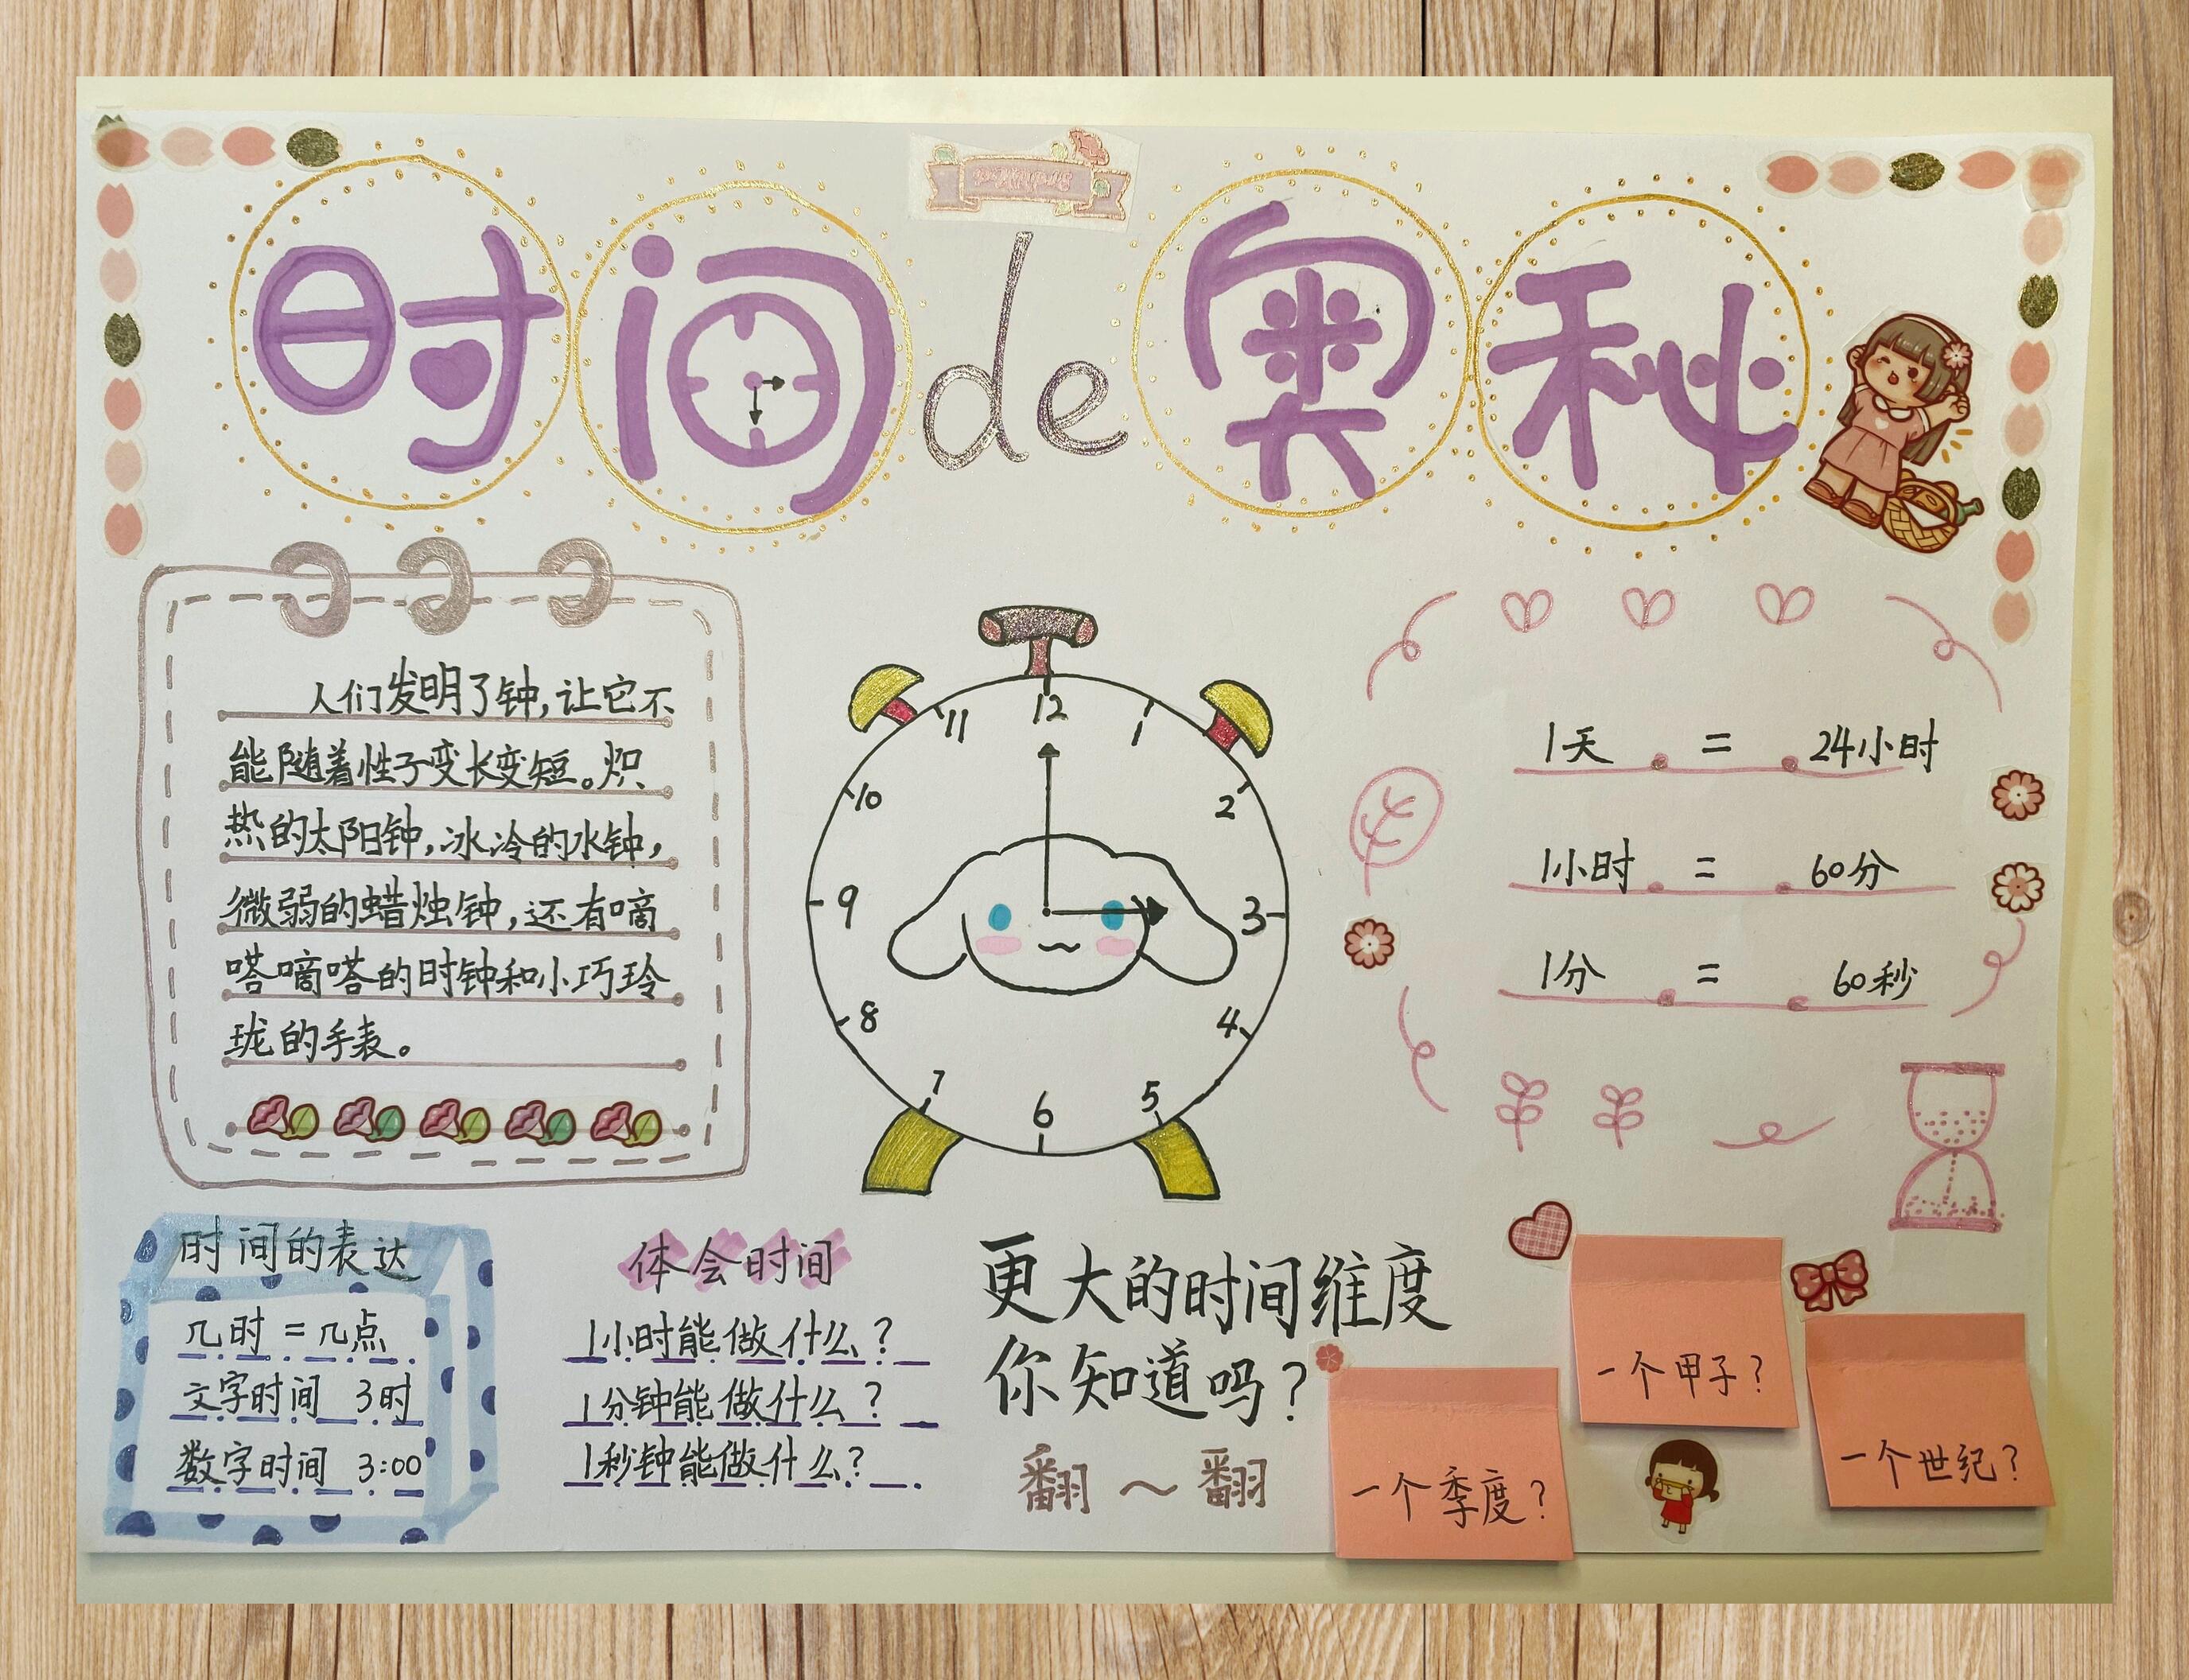 时间de奥秘
人们发明了钟,让它不
能随着性子变长变短。炽
热的太阳钟,冰冷的水钟,
微弱的蜡烛钟,还有嘀
嗒嘀嗒的时钟和小巧玲
珑的手表。
11
12
1
10
2
9
3
8
4
7
6
5
1天 = 24小时
1小时 = 60分
1分 = 60秒
时间的表达
几时=几点
文字时间 3时
数字时间 3:00
体会时间
1小时能做什么?
1分钟能做什么?
1秒钟能做什么?
更大的时间维度
你知道吗?
翻~翻
一个季度?
一个甲子?
一个世纪?